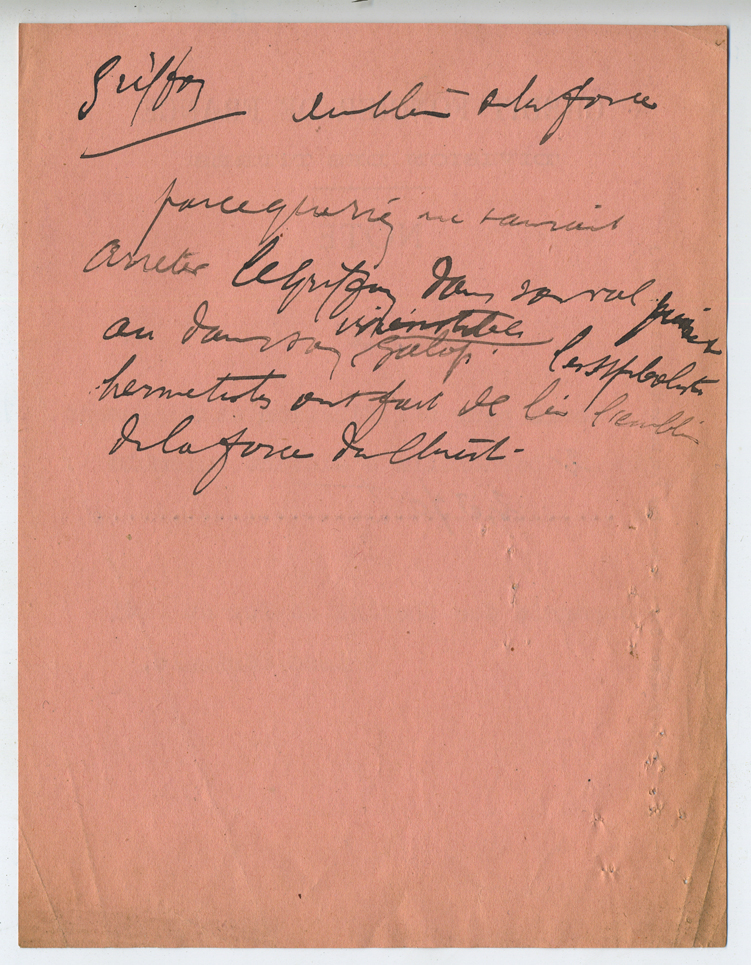 Griffon emblème de la force
parceque rien ne saurait
arreter le Griffon dans son vol
ou dans son galop. les symbolistes
hermetistes ont fait de lui l'emblème
de la force du Christ-